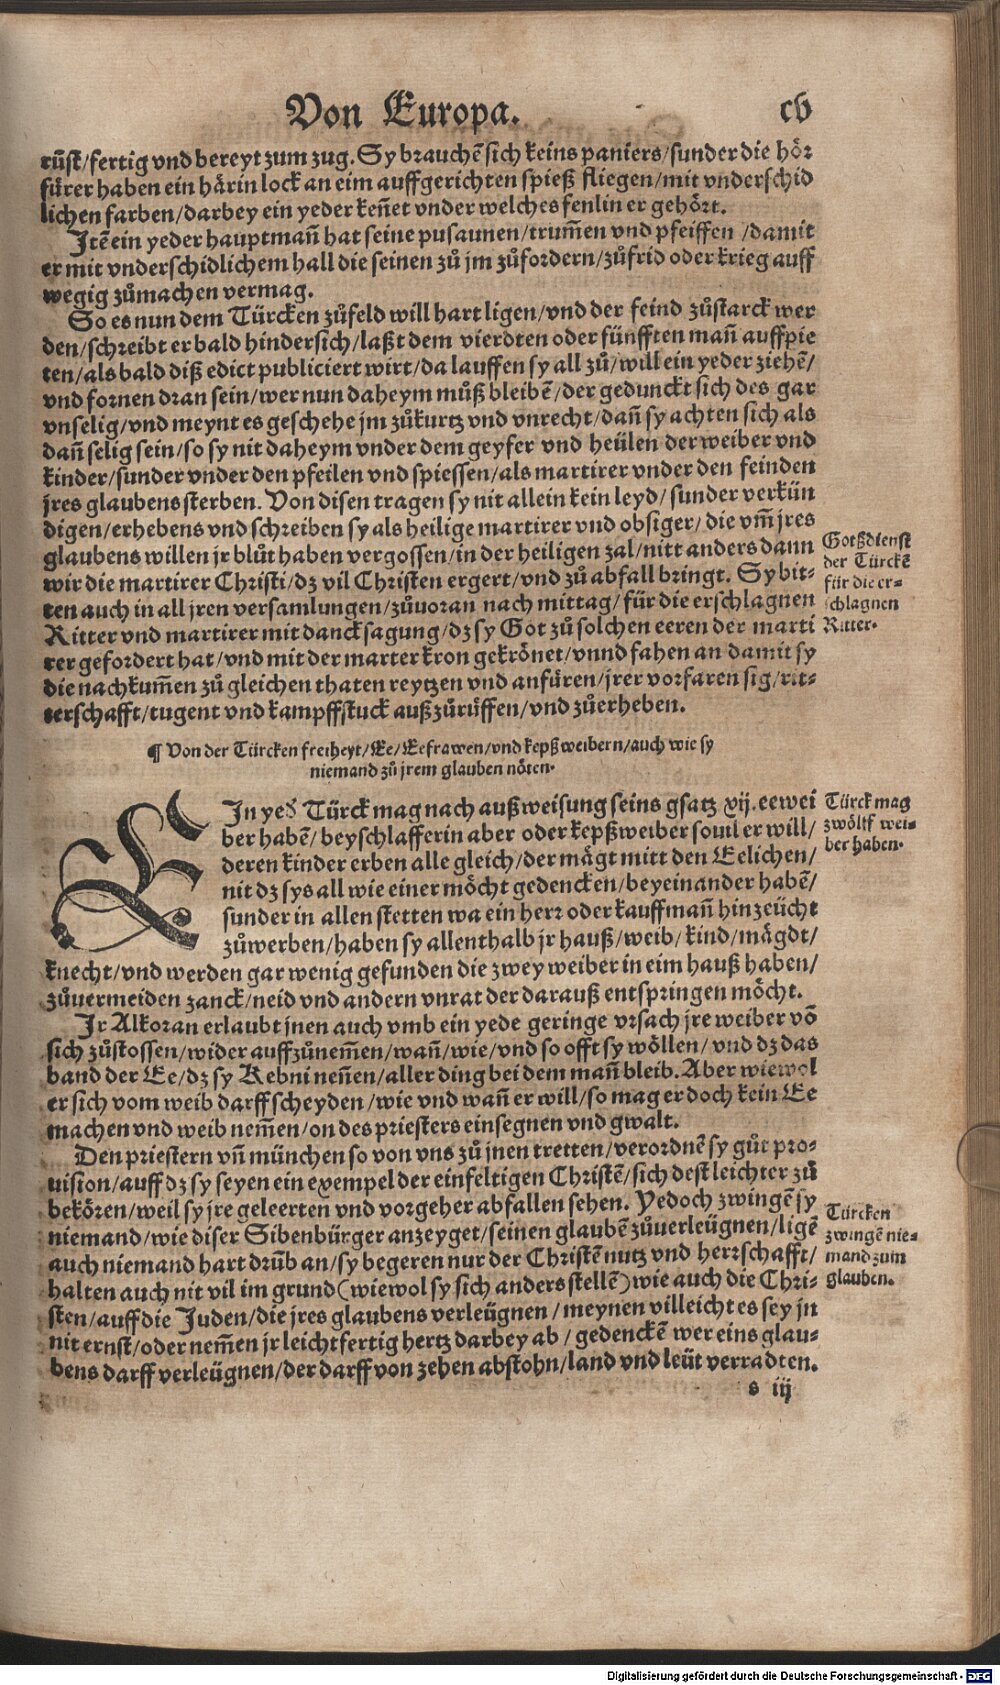 Von Europa.
cv
rüst/fertig vnd bereyt zum zug. Sy brauchē sich keins paniers/sunder die hör
fürer haben ein härin lock an eim auffgerichten spieß fliegen/mit vnderschid
lichen farben/darbey ein yeder keñet vnder welches fenlin er gehört.
Itē ein yeder hauptmañ hat seine pusaunen/trum̃en vnd pfeiffen /damit
er mit vnderschidlichem hall die seinen zů jm zůfordern/zůfrid oder krieg auff
wegig zůmachen vermag.
So es nun dem Türcken zůfeld will hart ligen/vnd der feind zůstarck wer
den/schreibt er bald hindersich/laßt dem vierdten oder fünfften mañ auffpie
ten/als bald diß edict publiciert wirt/da lauffen sy all zů/will ein yeder ziehē/
vnd fornen dran sein/wer nun daheym můß bleibē/der gedunckt sich des gar
vnselig/vnd meynt es geschehe jm zůkurtz vnd vnrecht/dañ sy achten sich als
dañ selig sein/so sy nit daheym vnder dem geyfer vnd heülen der weiber vnd
kinder/sunder vnder den pfeilen vnd spiessen/als martirer vnder den feinden
jres glaubens sterben. Von disen tragen sy nit allein kein leyd/sunder verkün
digen/erhebens vnd schreiben sy als heilige martirer vnd obsiger/die vm̃ jres
glaubens willen jr blůt haben vergossen/in der heiligen zal/nitt anders dann
wir die martirer Christi/dz vil Christen ergert/vnd zů abfall bringt. Sy bit⸗
ten auch in all jren versamlungen/zůuoran nach mittag/für die erschlagnen
Ritter vnd martirer mit dancksagung/dz sy Got zů solchen eeren der marti
rer gefordert hat/vnd mit der marter kron gekrönet/vnnd fahen an damit sy
die nachkum̃en zů gleichen thaten reytzen vnd anfüren/jrer vorfaren sig/rit⸗
terschafft/tugent vnd kampffstuck außzůrüffen/vnd zůerheben.
Gotßdienst
der Türckē
für die er⸗
schlagnen
Ritter.
¶ Von der Türcken freiheyt/Ee/Eefrawen/vnd kepßweibern/auch wie sy
niemand zů jrem glauben nöten.
EIn yed Türck mag nach außweisung seins gsatz xij. eewei
ber habē/beyschlafferin aber oder kepßweiber souil er will/
deren kinder erben alle gleich/der mägt mitt den Eelichen/
nit dz sys all wie einer möcht gedencken/beyeinander habē/
sunder in allen stetten wa ein herr oder kauffmañ hinzeücht
zůwerben/haben sy allenthalb jr hauß/weib/kind/mägdt/
knecht/vnd werden gar wenig gefunden die zwey weiber in eim hauß haben/
zůuermeiden zanck/neid vnd andern vnrat der darauß entspringen möcht.
Türck mag
zwölff wei⸗
ber haben.
Ir Alkoran erlaubt jnen auch vmb ein yede geringe vrsach jre weiber vō
sich zůstossen/wider auffzůnem̃en/wañ/wie/vnd so offt sy wöllen/vnd dz das
band der Ee/dz sy Kebni neñen/aller ding bei dem mañ bleib. Aber wiewol
er sich vom weib darff scheyden/wie vnd wañ er will/so mag er doch kein Ee
machen vnd weib nem̃en/on des priesters einsegnen vnd gwalt.
Den priestern vñ münchen so von vns zů jnen tretten/verordnē sy gůt pro⸗
uision/auff dz sy seyen ein exempel der einfeltigen Christē/sich dest leichter zů
bekören/weil sy jre geleerten vnd vorgeher abfallen sehen. Yedoch zwingē sy
niemand/wie diser Sibenbürger anzeyget/seinen glaubē zůuerleügnen/ligē
auch niemand hart drüb an/sy begeren nur der Christē nutz vnd herrschafft/
halten auch nit vil im grund (wiewol sy sich anders stellē) wie auch die Chri⸗
sten/auff die Juden/die jres glaubens verleügnen/meynen villeicht es sey jn
nit ernst/oder nem̃en jr leichtfertig hertz darbey ab/gedenckē wer eins glau⸗
bens darff verleügnen/der darff von zehen abstohn/land vnd leüt verradten.
Türcken
zwingē nie⸗
mand zum
glauben.
s iij
Digitalisierung gefördert durch die Deutsche Forschungsgemeinschaft - DFG